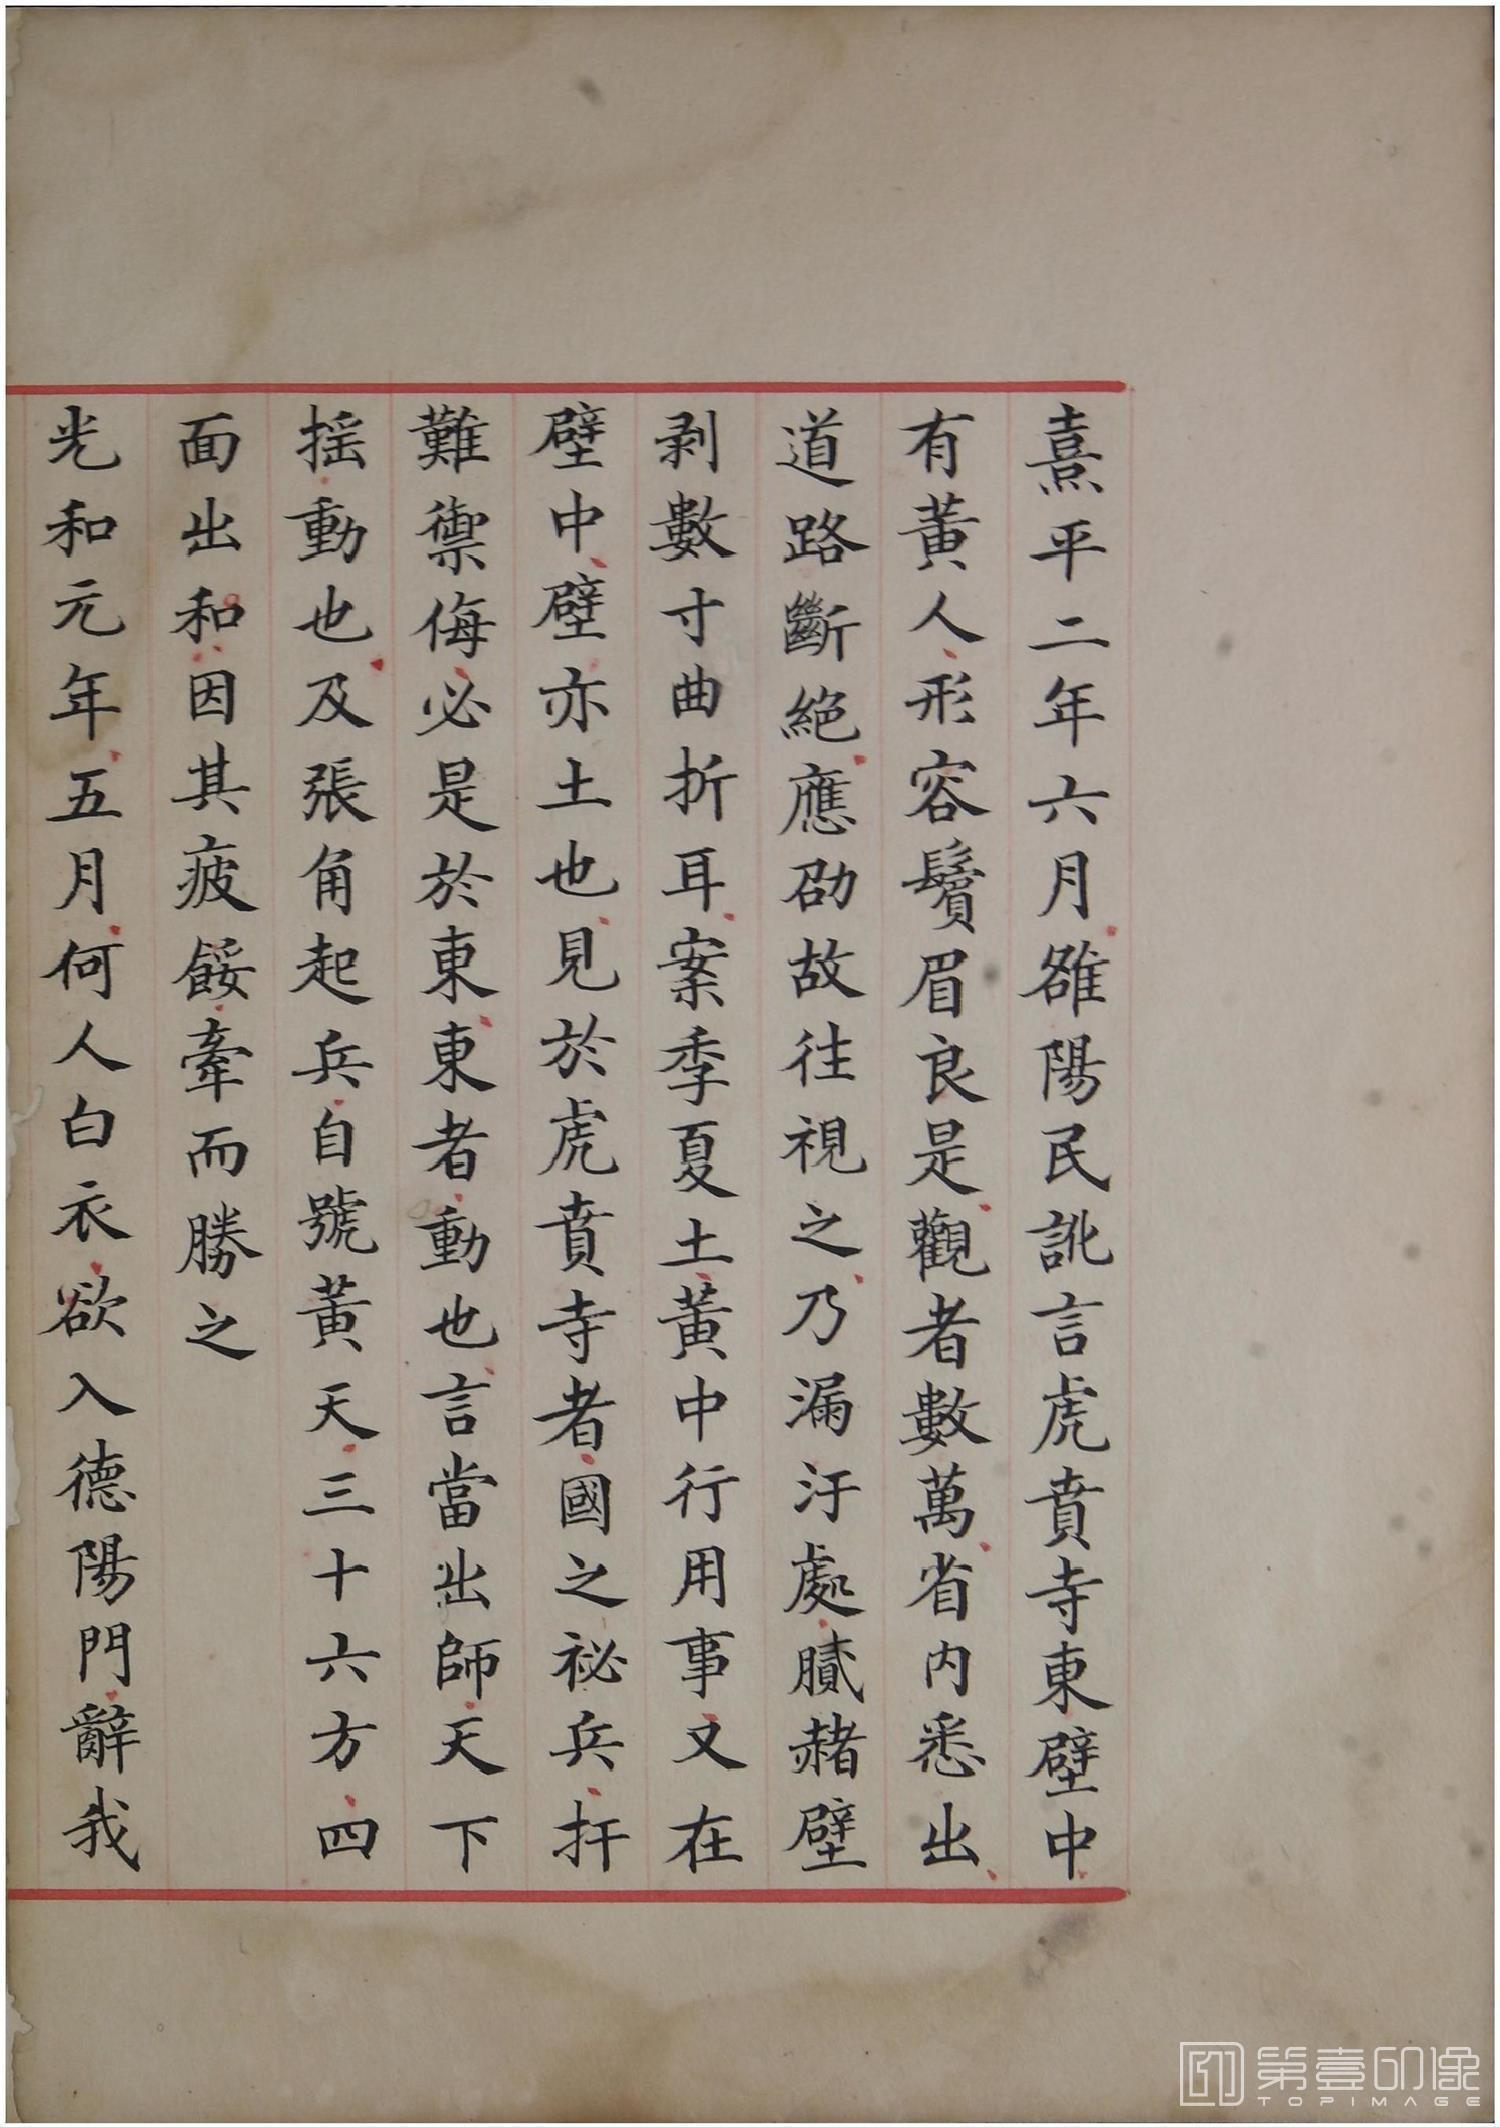 熹平二年六月雒陽民訛言虎賁寺東壁中
有黃人形容鬢眉良是觀者數萬省內悉出
道路斷絕應劭故往視之乃漏汙處膩赭壁
剥數寸曲折耳案季夏土黃中行用事又在
壁中壁亦土也見於虎賁寺者國之祕兵扞
難禦侮必是於東東者動也言當出師天下
摇動也及張角起兵自號黃天三十六方四
面出和因其疲餒牽而勝之
光和元年五月何人白衣欲入德陽門辭我
第壹印像
TOPIMAGE